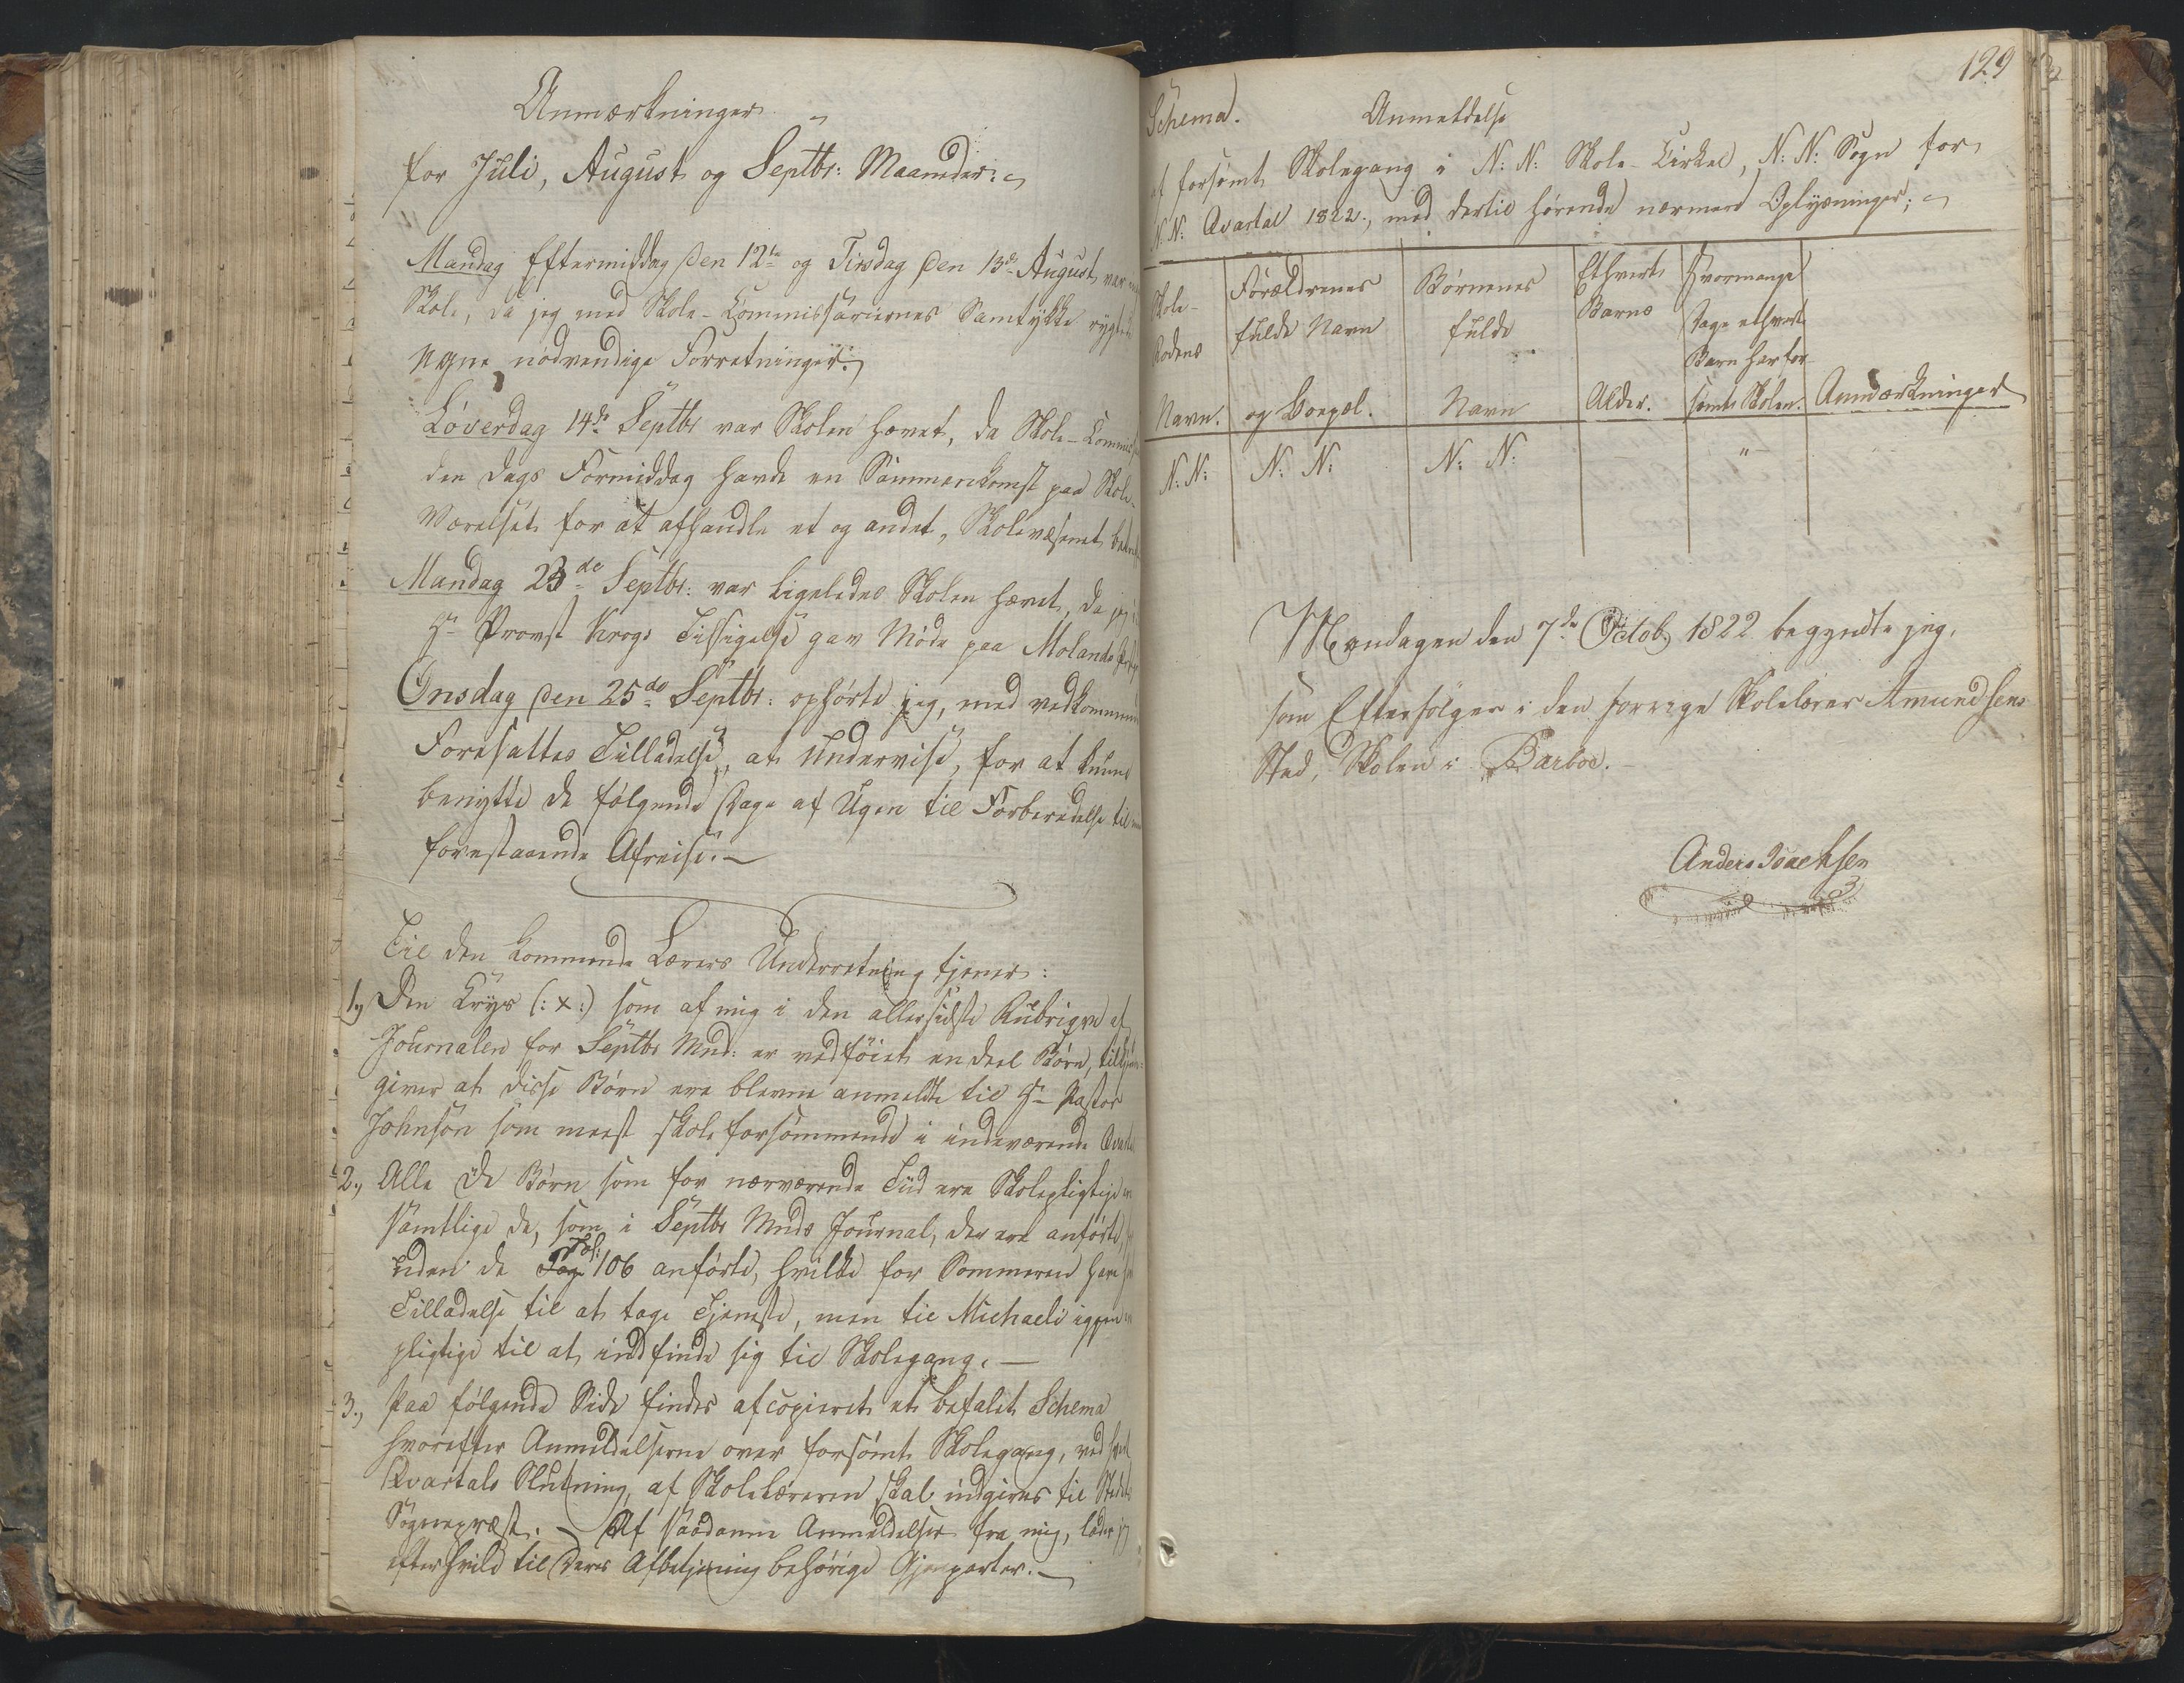 Anmærkninger
for Juli, August og Septbr: Maaneder:
Mandag Eftermiddag den 12te og Tirsdag den 13de August, var
Skole, da jeg med Skole-Commissariernes Samtykke
egne nödvendige Forretninger:
Löverdag 14de Septbr var Skolen hævet, da Skole-
den Dags Formiddag havde en Sammenkomst paa Skole-
Værelset for at afhandle et og andet, Skolevæsenet
Mandag 23de Septbr: var ligeledes Skolen hævet, da jeg
Hr Provst Krogs Tilsigelse gav Möde paa Molands
Onsdag den 25de Septbr: ophörte jeg, med
Foresattes Tilladelse, at undervise, for at kunne
benytte de fölgende Dage af Ugen til Forberedelse til
forestaaende Afreise.
Til den kommende Lærers Underretning tjener:
1.) Den Kryds (:x:) som af mig i den allersidste Rubrique af
Journalen for Septbr Mnd: er vedföiet en deel Börn,
giver at disse Börn ere blevne anmeldte til Hr Pastor
Johnson som meest skoleforsömmende i indeværende
2., Alle de Börn som for nærværende Tiid ere Skolepligtige
samtlige de, som i Septbr Mnds Journal, der ere anförte,
uden de Fol: 106 anförte, hvilke for Sommeren have
Tilladelse til at tage Tjeneste, men til Michaeli igjen
pligtige til at indfinde sig til Skolegang.
3., Paa fölgende Side findes afcopieret et befalet Schema
hvorefter Anmeldelserne over forsömt Skolegang, ved hvert
Qvartals Slutning, af Skolelæreren skal indgives til Stedets
Sognepræst. Af saadanne Anmeldelser fra mig, lader jeg
efter hvile til Deres Afbetjening behörige Gjenparter.
129
Schema. Anmeldelse
at forsömt Skolegang i N: N: Skole-Cirkel, N: N: Sogn for
N: N: Qvartal 1822., med dertil hörende nærmere Oplysninger;
Skole-
Rodens
Navn. Forældrenes
fulde Navn
og Boepæl. Börnenes
fulde
Navn Ethvert
Barns
Alder. Hvormange
Dage ethvert
Barn har for-
sömt Skolen. Anmærkninger
N: N: N: N: N: N: "
Mandagen den 7de Octob, 1822 begyndte jeg,
som Efterfölger i den forrige Skolelærer Amundsens
Sted, Skolen i Barboe.
Anders Isachsen